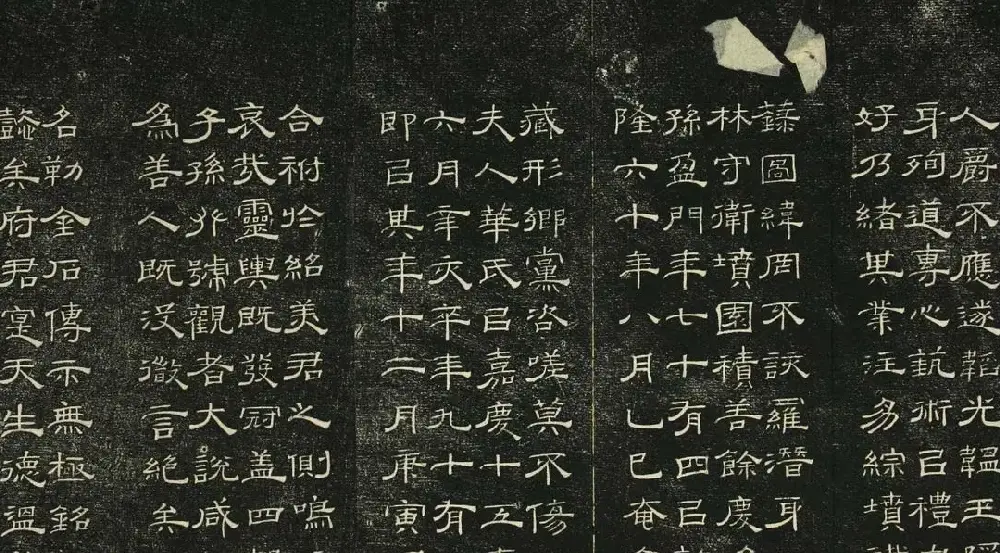 人爵不應遂韜光韞玉
身殉道專心藝術㠯禮
好乃緒其業注易綜墳
圖緯罔不該羅潛身
林守衛墳園積善餘慶
孫盈門年七十有四㠯
隆六十年八月乙巳奄
藏形鄉黨咨嗟莫不傷
夫人華氏㠯嘉慶十五
六月辛亥卒年九十有
即㠯其年十二月庚寅
合祔於紹美君之側嗚
哀哉靈輿既發冠盖四
子孫行號觀者大說咸
為善人既沒微言絕矣
名勒金石傳示無極銘
懿矣府君寔天生德溫